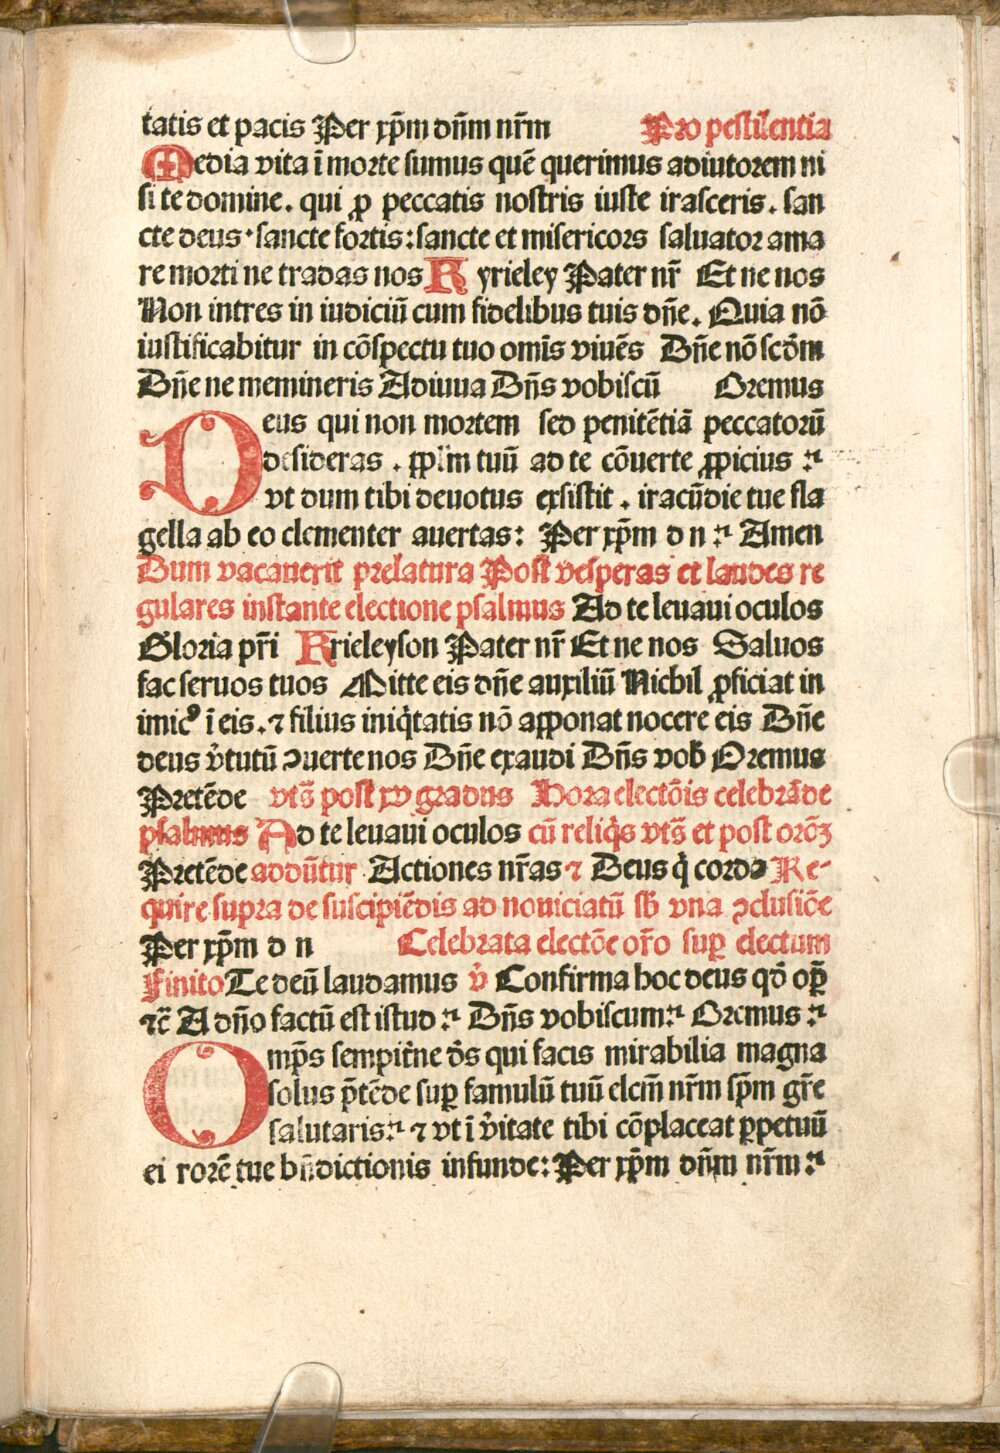 tatis et pacis Per xp̄m dn̄m nr̄m Pro pestilentia
Media vita ī morte sumus quē querimus adiutorem ni
si te domine. qui ꝓ peccatis nostris iuste irasceris. san
cte deus·sancte fortis:sancte et misericors saluator ama
re morti ne tradas nos Kyrieley Pater nr̄ Et ne nos
Non intres in iudiciū cum fidelibus tuis dn̄e. Quia nō
iustificabitur in cōspectu tuo omīs viuēs Dn̄e nō scd̄m
Dn̄e ne memineris Adiuua Dn̄s vobiscū Oremus
Deus qui non mortem sed penitētiā peccatorū
desideras . pp̄lm tuū ad te cōuerte ꝓpicius :⁊
vt dum tibi deuotus exsistit . iracūdie tue fla
gella ab eo clementer auertas: Per xp̄m d n :⁊ Amen
Dum vacauerit prelatura Post vesperas et laudes re
gulares instante electione psalmus Ad te leuaui oculos
Gloria pr̄i Krieleyson Pater nr̄ Et ne nos Saluos
fac seruos tuos Mitte eis dn̄e auxiliū Nichil ꝓficiat in
imicꝰ ī eis.⁊ filius iniq̇tatis nō apponat nocere eis Dn̄e
deus v̓tutū ꝯuerte nos Dn̄e exaudi Dn̄s vob̄ Oremus
Pretēde vts̄ post xv gradus Hora electōis celebrāde
psalmus Ad te leuaui oculos cū reliq̇s vts̄ et post orōꝫ
Pretēde addūtur Actiones nr̄as ⁊ Deus q̇ corda Re-
quire supra de suscipiēdis ad nouiciatū sb̄ vna ꝯclusiōe
Per xp̄m d n Celebrata electōe or̄o suꝑ electum
Finito Te deū laudamus v̓ Confirma hoc deus qd̄ oꝑ̄
⁊c̄ A dn̄o factū est istud:⁊ Dn̄s vobiscum:⁊ Oremus :⁊
Omp̄s sempit̓ne ds̄ qui facis mirabilia magna
solus p̄tēde suꝑ famulū tuū elcm̄ nr̄m sp̄m gr̄e
salutaris:⁊ ⁊ vt ī v̓itate tibi cōplaceat ꝑpetuū
ei rorē tue bn̄dictionis infunde: Per xp̄m dn̄m nr̄m:⁊